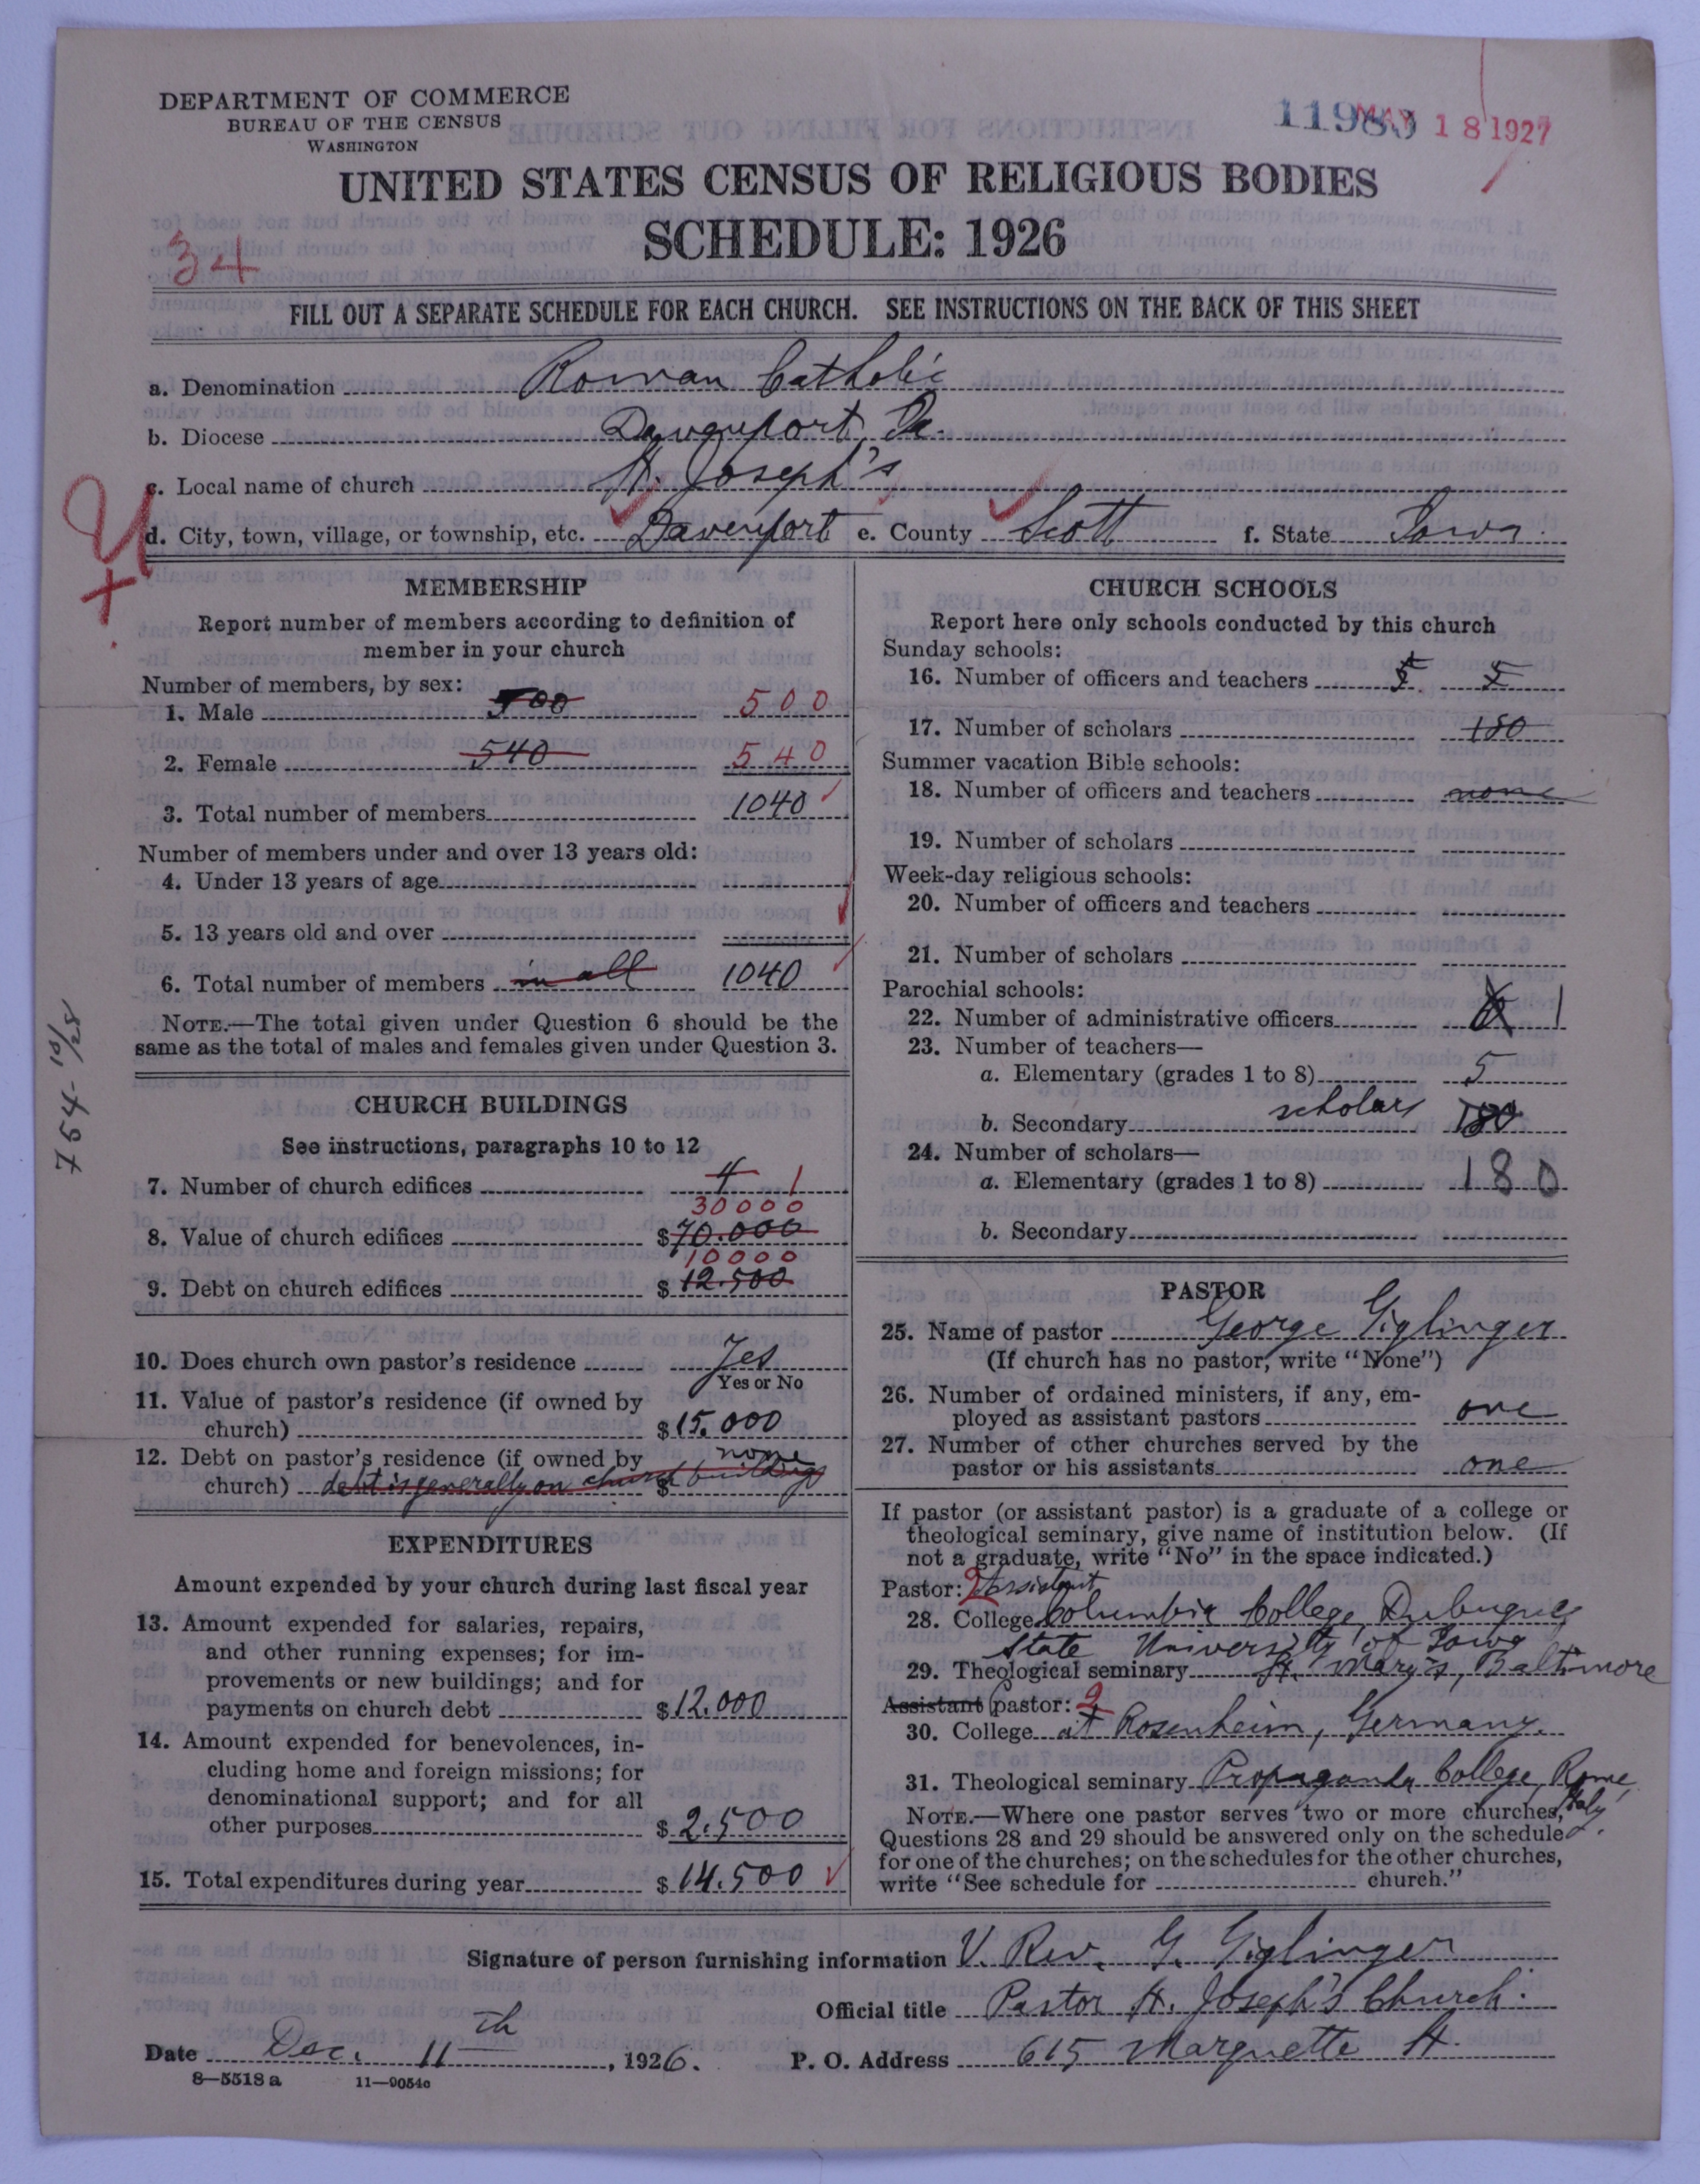 DEPARTMENT OF COMMERCE
BUREAU OF THE CENSUS
WASHINGTON
MAY 18 1927
UNITED STATES CENSUS OF RELIGIOUS BODIES
SCHEDULE: 1926
34
FILL OUT A SEPARATE SCHEDULE FOR EACH CHURCH. SEE INSTRUCTIONS ON THE BACK OF THIS SHEET
a. Denomination Roman Catholic
b. Diocese Davenport, Ia.
c. Local name of church St. Joseph's
d. City, town, village, or township, etc. Davenport e. County Scott f. State Iowa
MEMBERSHIP
Report number of members according to definition of
member in your church
Number of members, by sex:
1. Male 500 500
2. Female 540 540
3. Total number of members 1040
Number of members under and over 13 years old:
4. Under 13 years of age
5. 13 years old and over
6. Total number of members in all 1040
NOTE.—The total given under Question 6 should be the
same as the total of males and females given under Question 3.
754-10/28
CHURCH BUILDINGS
See instructions, paragraphs 10 to 12
7. Number of church edifices 4 1
30000
8. Value of church edifices $70.000
10000
9. Debt on church edifices $12.500
10. Does church own pastor's residence Yes
Yes or No
11. Value of pastor's residence (if owned by
church) $15.000
12. Debt on pastor's residence (if owned by none
church) debt is generally on church buildings $
EXPENDITURES
Amount expended by your church during last fiscal year
13. Amount expended for salaries, repairs,
and other running expenses; for im-
provements or new buildings; and for
payments on church debt $12.000
14. Amount expended for benevolences, in-
cluding home and foreign missions; for
denominational support; and for all
other purposes $2.500
15. Total expenditures during year $14.500
CHURCH SCHOOLS
Report here only schools conducted by this church
Sunday schools:
16. Number of officers and teachers 5 5
17. Number of scholars 180
Summer vacation Bible schools:
18. Number of officers and teachers none
19. Number of scholars
Week-day religious schools:
20. Number of officers and teachers
21. Number of scholars
Parochial schools:
22. Number of administrative officers 1
23. Number of teachers—
a. Elementary (grades 1 to 8) 5
b. Secondary scholars 180
24. Number of scholars—
a. Elementary (grades 1 to 8) 180
b. Secondary
PASTOR
25. Name of pastor George Giglinger
(If church has no pastor, write "None")
26. Number of ordained ministers, if any, em-
ployed as assistant pastors one
27. Number of other churches served by the
pastor or his assistants one
If pastor (or assistant pastor) is a graduate of a college or
theological seminary, give name of institution below. (If
not a graduate, write "No" in the space indicated.)
Pastor: 2 Assistant
28. College Columbia College, Dubuque
State University of Iowa
29. Theological seminary St. Mary's, Baltimore
Assistant pastor: 2
30. College at Rosenheim, Germany.
31. Theological seminary Propaganda College, Rome,
Italy.
NOTE.—Where one pastor serves two or more churches,
Questions 28 and 29 should be answered only on the schedule
for one of the churches; on the schedules for the other churches,
write "See schedule for church."
Signature of person furnishing information V. Rev. G. Giglinger
Official title Pastor St. Joseph's Church.
Date Dec. 11th, 1926. P. O. Address 615 Marquette St.
8—5518a 11—9054c